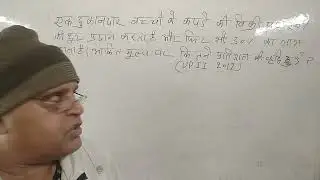 एक दुकानदार बच्चों के कपड़े की बिक्री पर
की छूट प्रदान करता है और फिर भी 30% का लाभ
है। अंकित मूल्य पर कितने प्रतिशत की हुई ?
(UPSI 2017)